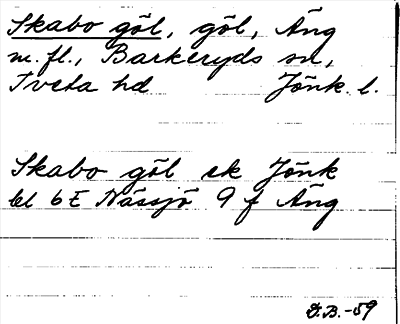 Skabo göl, göl, Äng
m. fl., Barkeryds sn,
Tveta hd Jönk. l.
Skabo göl ek Jönk
bl 6 E Nässjö 9 f Äng
D.B.-59